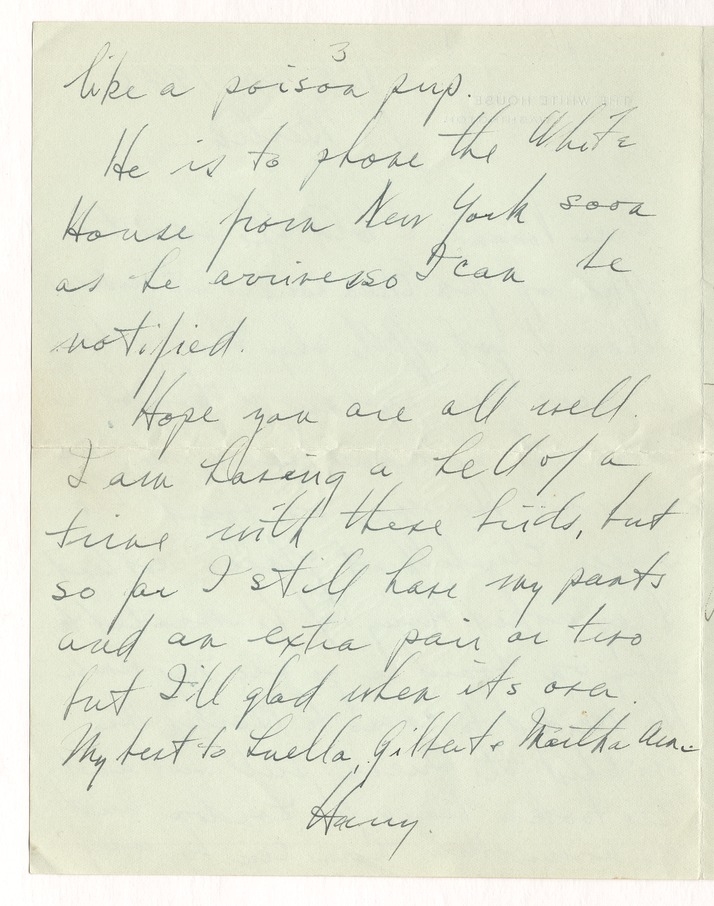 3
like a poison pup.
He is to phone the White
House from New York soon
as he arrives so I can be
notified.
Hope you are all well.
I am having a hell of a
time with these birds, but
so far I still have my pants
and an extra pair or two
but I'll glad when its over.
My best to Luella, Gilbert & Martha Ann
Harry.